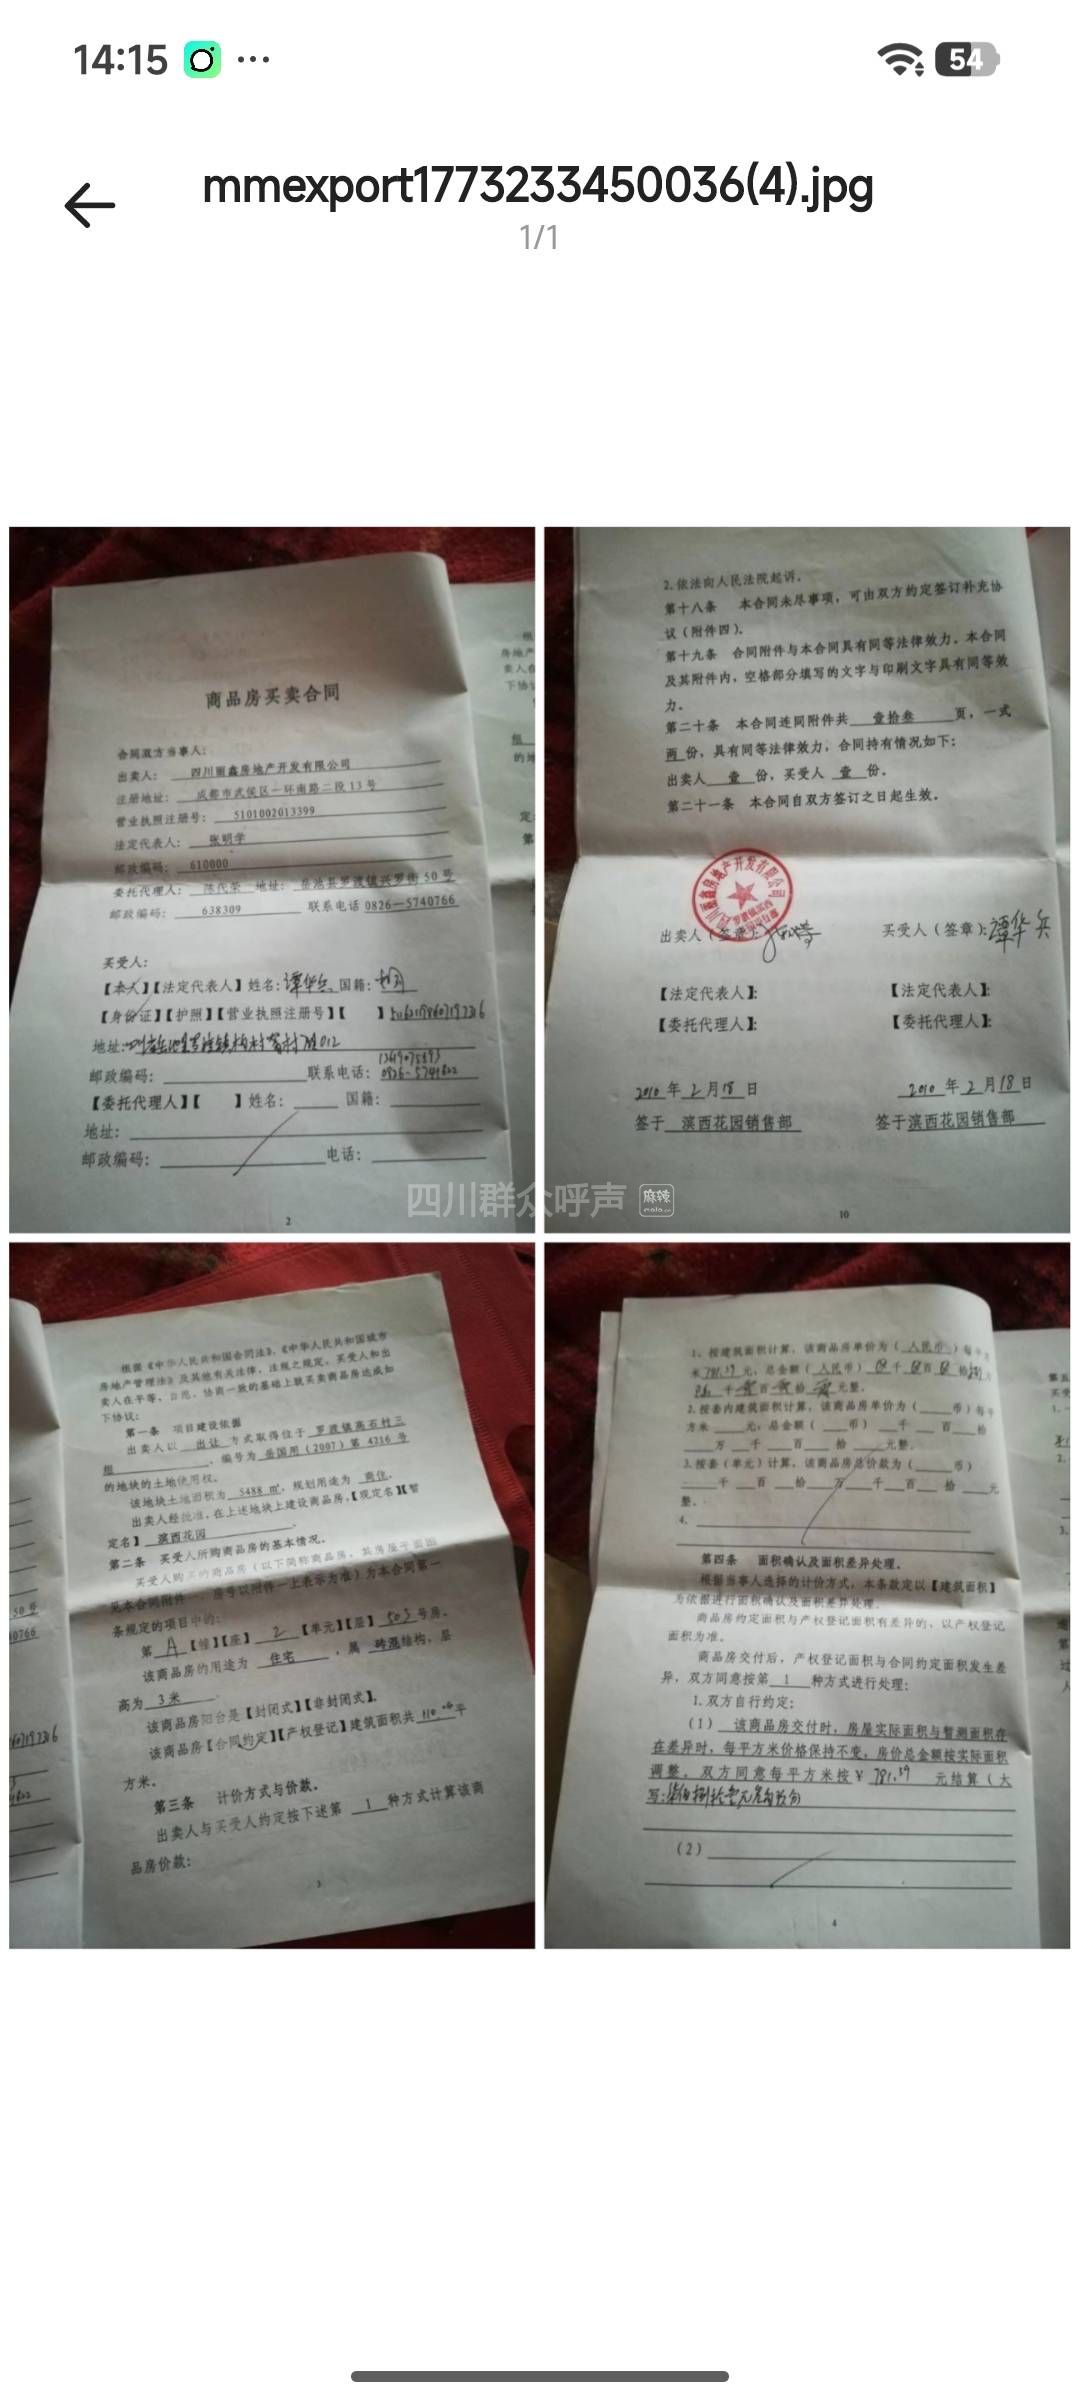 14:15
54
mmexport1773233450036(4).jpg
1/1
商品房买卖合同
合同双方当事人：
出卖人： 四川丽鑫房地产开发有限公司
注册地址： 成都市武侯区一环南路二段13号
营业执照注册号： 5101002013399
法定代表人： 张明学
邮政编码： 610000
委托代理人： 陈代荣 地址： 岳池县罗渡镇兴罗街50号
邮政编码： 638309 联系电话 0826—5740766
买受人：
【本人】【法定代表人】姓名：谭华兵 国籍：
【身份证】【护照】【营业执照注册号】【 】
地址：
邮政编码： 联系电话：
【委托代理人】【 】姓名： 国籍：
地址：
邮政编码： 电话：
2
2.依法向人民法院起诉。
第十八条 本合同未尽事项，可由双方约定签订补充协
议（附件四）。
第十九条 合同附件与本合同具有同等法律效力。本合同
及其附件内，空格部分填写的文字与印刷文字具有同等效
力。
第二十条 本合同连同附件共 壹拾叁 页，一式
两 份，具有同等法律效力，合同持有情况如下：
出卖人 壹 份，买受人 壹 份。
第二十一条 本合同自双方签订之日起生效。
出卖人（签章）： 买受人（签章）：谭华兵
【法定代表人】： 【法定代表人】：
【委托代理人】： 【委托代理人】：
2010 年 2 月 18 日 2010 年 2 月 18 日
签于 滨西花园销售部 签于 滨西花园销售部
10
四川群众呼声 麻辣
根据《中华人民共和国合同法》、《中华人民共和国城市
房地产管理法》及其他有关法律、法规之规定，买受人和出
卖人在平等、自愿、协商一致的基础上就买卖商品房达成如
下协议：
第一条 项目建设依据
出卖人以 出让 方式取得位于 罗渡镇高石村三
组 、编号为 岳国用（2007）第 4216 号
的地块的土地使用权。
该地块土地面积为 5488 ㎡，规划用途为 商住。
出卖人经批准，在上述地块上建设商品房，【现定名】【暂
定名】 滨西花园 。
第二条 买受人所购商品房的基本情况。
买受人购买的商品房（以下简称商品房，其房屋平面图
见本合同附件一，房号以附件一上表示为准）为本合同第一
条规定的项目中的：
第 A 【幢】【座】 2 【单元】【层】 503 号房。
该商品房的用途为 住宅 ，属 砖混 结构，层
高为 3米 。
该商品房阳台是【封闭式】【非封闭式】。
该商品房【合同约定】【产权登记】建筑面积共 平
方米。
第三条 计价方式与价款。
出卖人与买受人约定按下述第 1 种方式计算该商
品房价款：
3
1、按建筑面积计算，该商品房单价为（ 人民币 ）每平方
米 781.39 元，总金额（ 人民币 ） 千 百 拾
千 百 拾 元整。
2.按套内建筑面积计算，该商品房单价为（ 币）每平
方米 元，总金额（ 币） 千 百 拾
万 千 百 拾 元整。
3.按套（单元）计算，该商品房总价款为（ 币）
千 百 拾 万 千 百 拾 元
整。
4.
第四条 面积确认及面积差异处理。
根据当事人选择的计价方式，本条款定以【建筑面积】
为依据进行面积确认及面积差异处理。
商品房约定面积与产权登记面积有差异的，以产权登记
面积为准。
商品房交付后，产权登记面积与合同约定面积发生差
异，双方同意按第 1 种方式进行处理：
1.双方自行约定：
（1） 该商品房交付时，房屋实际面积与暂测面积存
在差异时，每平方米价格保持不变，房价总金额按实际面积
调整。双方同意每平方米按￥ 781.39 元结算（大
写：
（2）
4